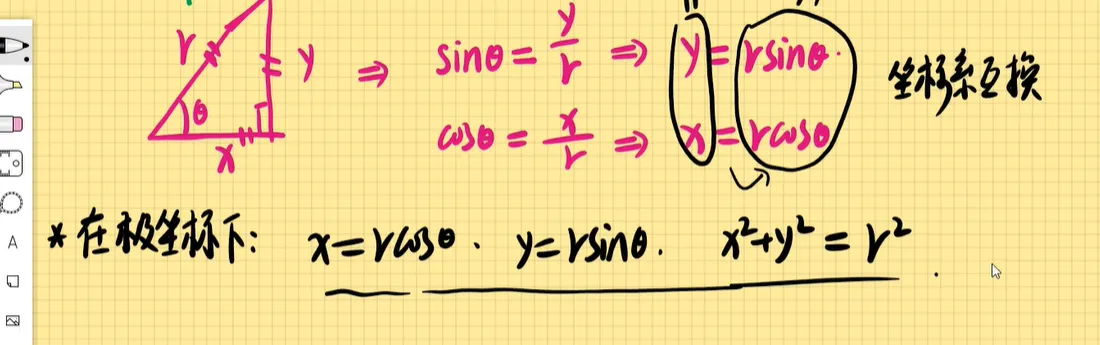 r y ⇒ sinθ = y/r ⇒ y = rsinθ.
θ
x cosθ = x/r ⇒ x = rcosθ
坐标系互换
* 在极坐标下: x = rcosθ. y = rsinθ. x² + y² = r².
A